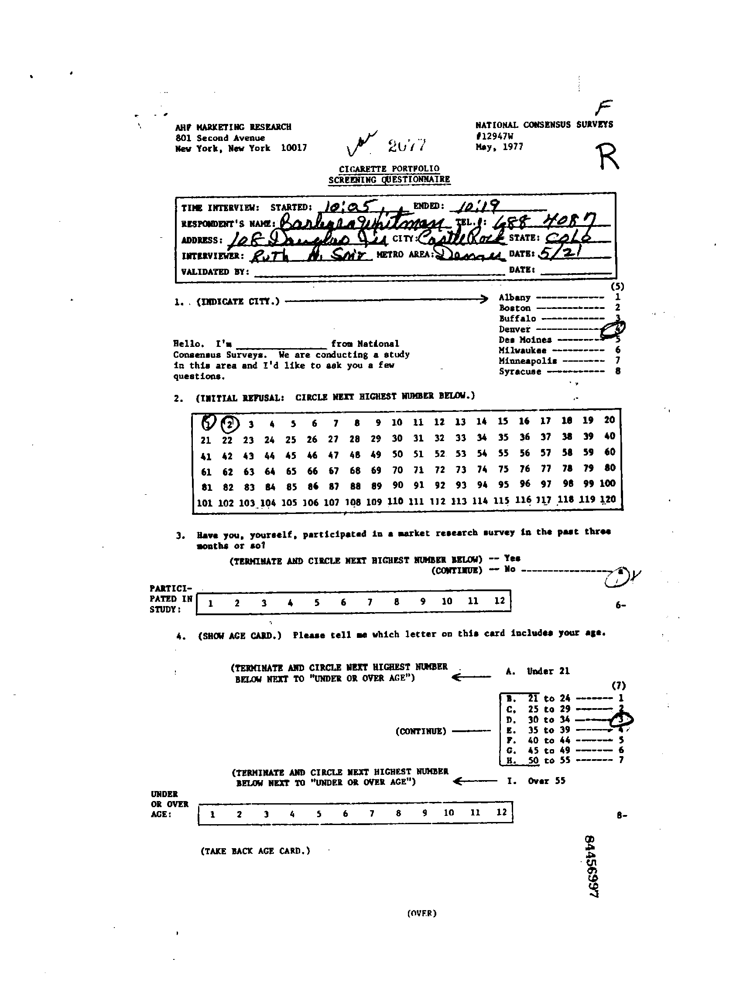 F
AHF MARKETING RESEARCH
801 Second Avenue
New York, New York 10017
2077
NATIONAL CONSENSUS SURVEYS
#12947W
May, 1977
R
CIGARETTE PORTFOLIO
SCREENING QUESTIONNAIRE
TIME INTERVIEW: STARTED: 10:05 ENDED: 10:19
RESPONDENT'S NAME: Barbara Whitman TEL.#: 688 4087
ADDRESS: 108 Douglas CITY: Castle Rock STATE: COLO
INTERVIEWER: RUTH METRO AREA: Denver DATE: 5/21
VALIDATED BY: DATE:
(5)
1. (INDICATE CITY.)
Albany 1
Boston 2
Buffalo 3
Denver 4
Des Moines 5
Milwaukee 6
Minneapolis 7
Syracuse 8
Hello. I'm from National
Consensus Surveys. We are conducting a study
in this area and I'd like to ask you a few
questions.
2. (INITIAL REFUSAL: CIRCLE NEXT HIGHEST NUMBER BELOW.)
1 2 3 4 5 6 7 8 9 10 11 12 13 14 15 16 17 18 19 20
21 22 23 24 25 26 27 28 29 30 31 32 33 34 35 36 37 38 39 40
41 42 43 44 45 46 47 48 49 50 51 52 53 54 55 56 57 58 59 60
61 62 63 64 65 66 67 68 69 70 71 72 73 74 75 76 77 78 79 80
81 82 83 84 85 86 87 88 89 90 91 92 93 94 95 96 97 98 99 100
101 102 103 104 105 106 107 108 109 110 111 112 113 114 115 116 117 118 119 120
3. Have you, yourself, participated in a market research survey in the past three
months or so?
(TERMINATE AND CIRCLE NEXT HIGHEST NUMBER BELOW) -- Yes
(CONTINUE) -- No
PARTICI-
PATED IN
STUDY: 1 2 3 4 5 6 7 8 9 10 11 12
6-
4. (SHOW AGE CARD.) Please tell me which letter on this card includes your age.
(TERMINATE AND CIRCLE NEXT HIGHEST NUMBER
BELOW NEXT TO "UNDER OR OVER AGE")
A. Under 21
(7)
B. 21 to 24 ------- 1
C. 25 to 29 ------- 2
D. 30 to 34 ------- 3
(CONTINUE)
E. 35 to 39 ------- 4
F. 40 to 44 ------- 5
G. 45 to 49 ------- 6
H. 50 to 55 ------- 7
(TERMINATE AND CIRCLE NEXT HIGHEST NUMBER
BELOW NEXT TO "UNDER OR OVER AGE")
I. Over 55
UNDER
OR OVER
AGE: 1 2 3 4 5 6 7 8 9 10 11 12
8-
(TAKE BACK AGE CARD.)
84456997
(OVER)